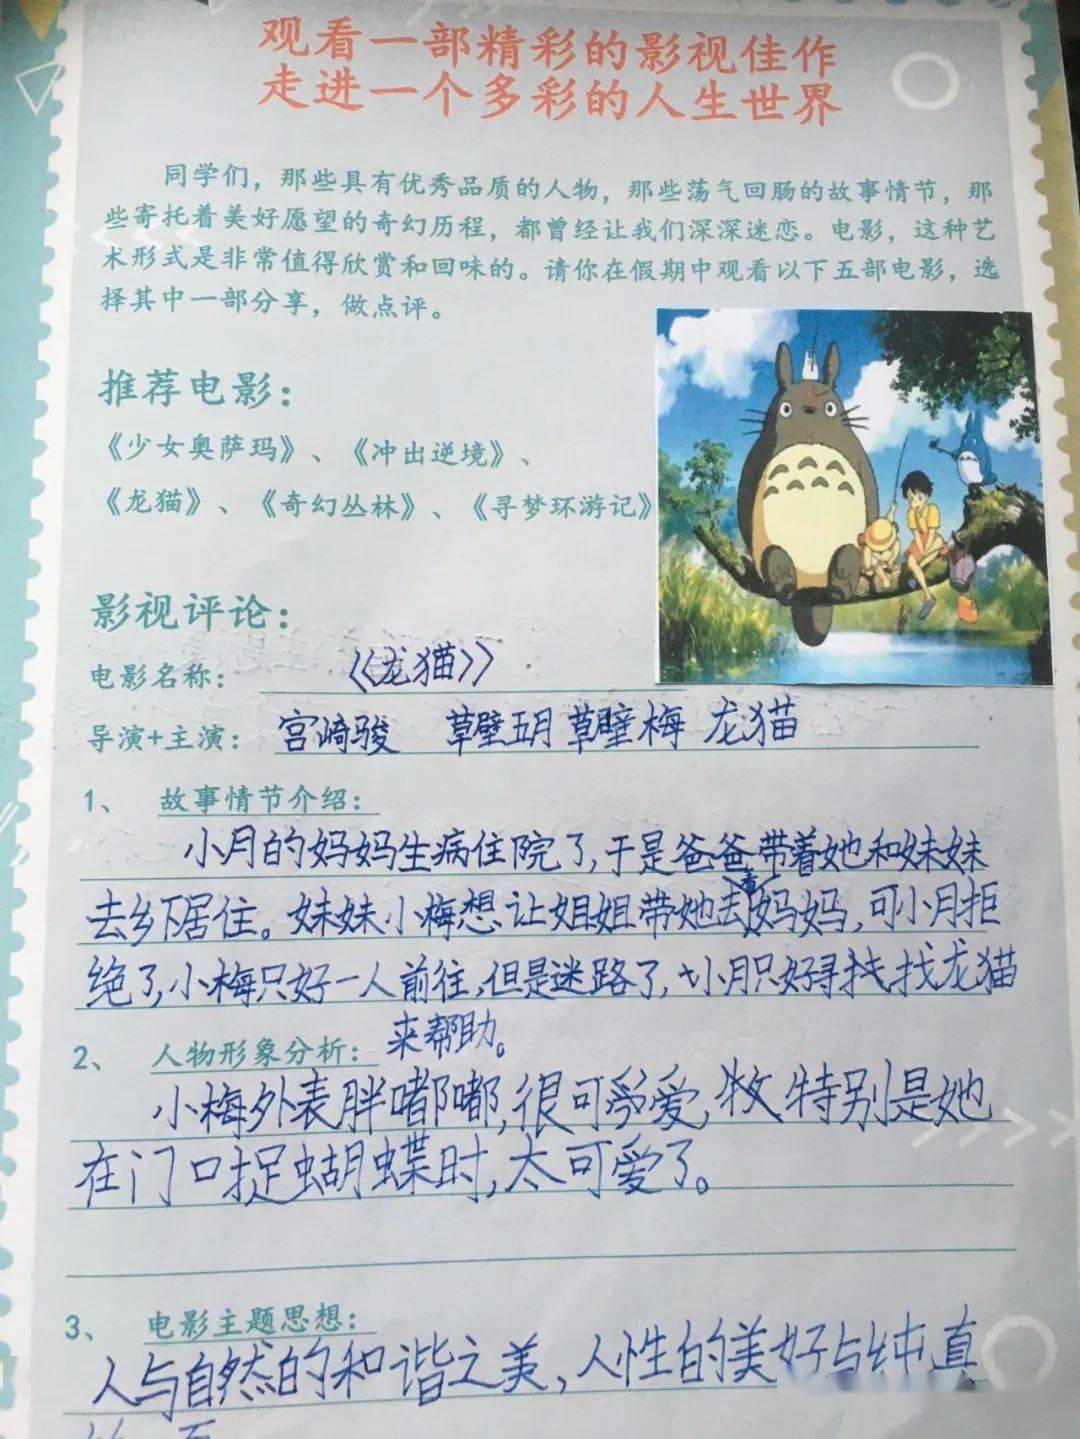 观看一部精彩的影视佳作
走进一个多彩的人生世界
同学们，那些具有优秀品质的人物，那些荡气回肠的故事情节，那
些寄托着美好愿望的奇幻历程，都曾经让我们深深迷恋。电影，这种艺
术形式是非常值得欣赏和回味的。请你在假期中观看以下五部电影，选
择其中一部分享，做点评。
推荐电影：
《少女奥萨玛》、《冲出逆境》、
《龙猫》、《奇幻丛林》、《寻梦环游记》
影视评论：
电影名称： 《龙猫》
导演+主演： 宫崎骏 草壁五月 草壁梅 龙猫
1、 故事情节介绍：
小月的妈妈生病住院了，于是爸爸带着她和妹妹
去乡下居住。妹妹小梅想让姐姐带她去看妈妈，可小月拒
绝了，小梅只好一人前往，但是迷路了，小月只好寻找，找龙猫
来帮助。
2、 人物形象分析：
小梅外表胖嘟嘟，很可爱，特别是她
在门口捉蝴蝶时，太可爱了。
3、 电影主题思想：
人与自然的和谐之美，人性的美好与纯真